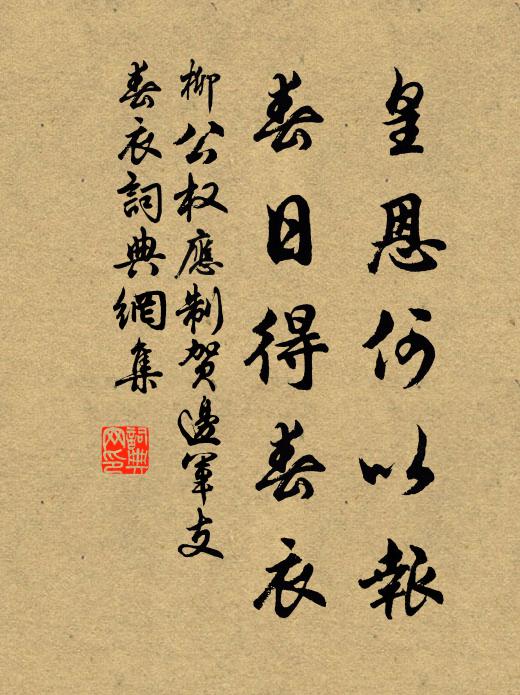 皇恩何以報
春日得春衣
柳公权應制賀邊軍支
春衣詞典網集
詞典网印